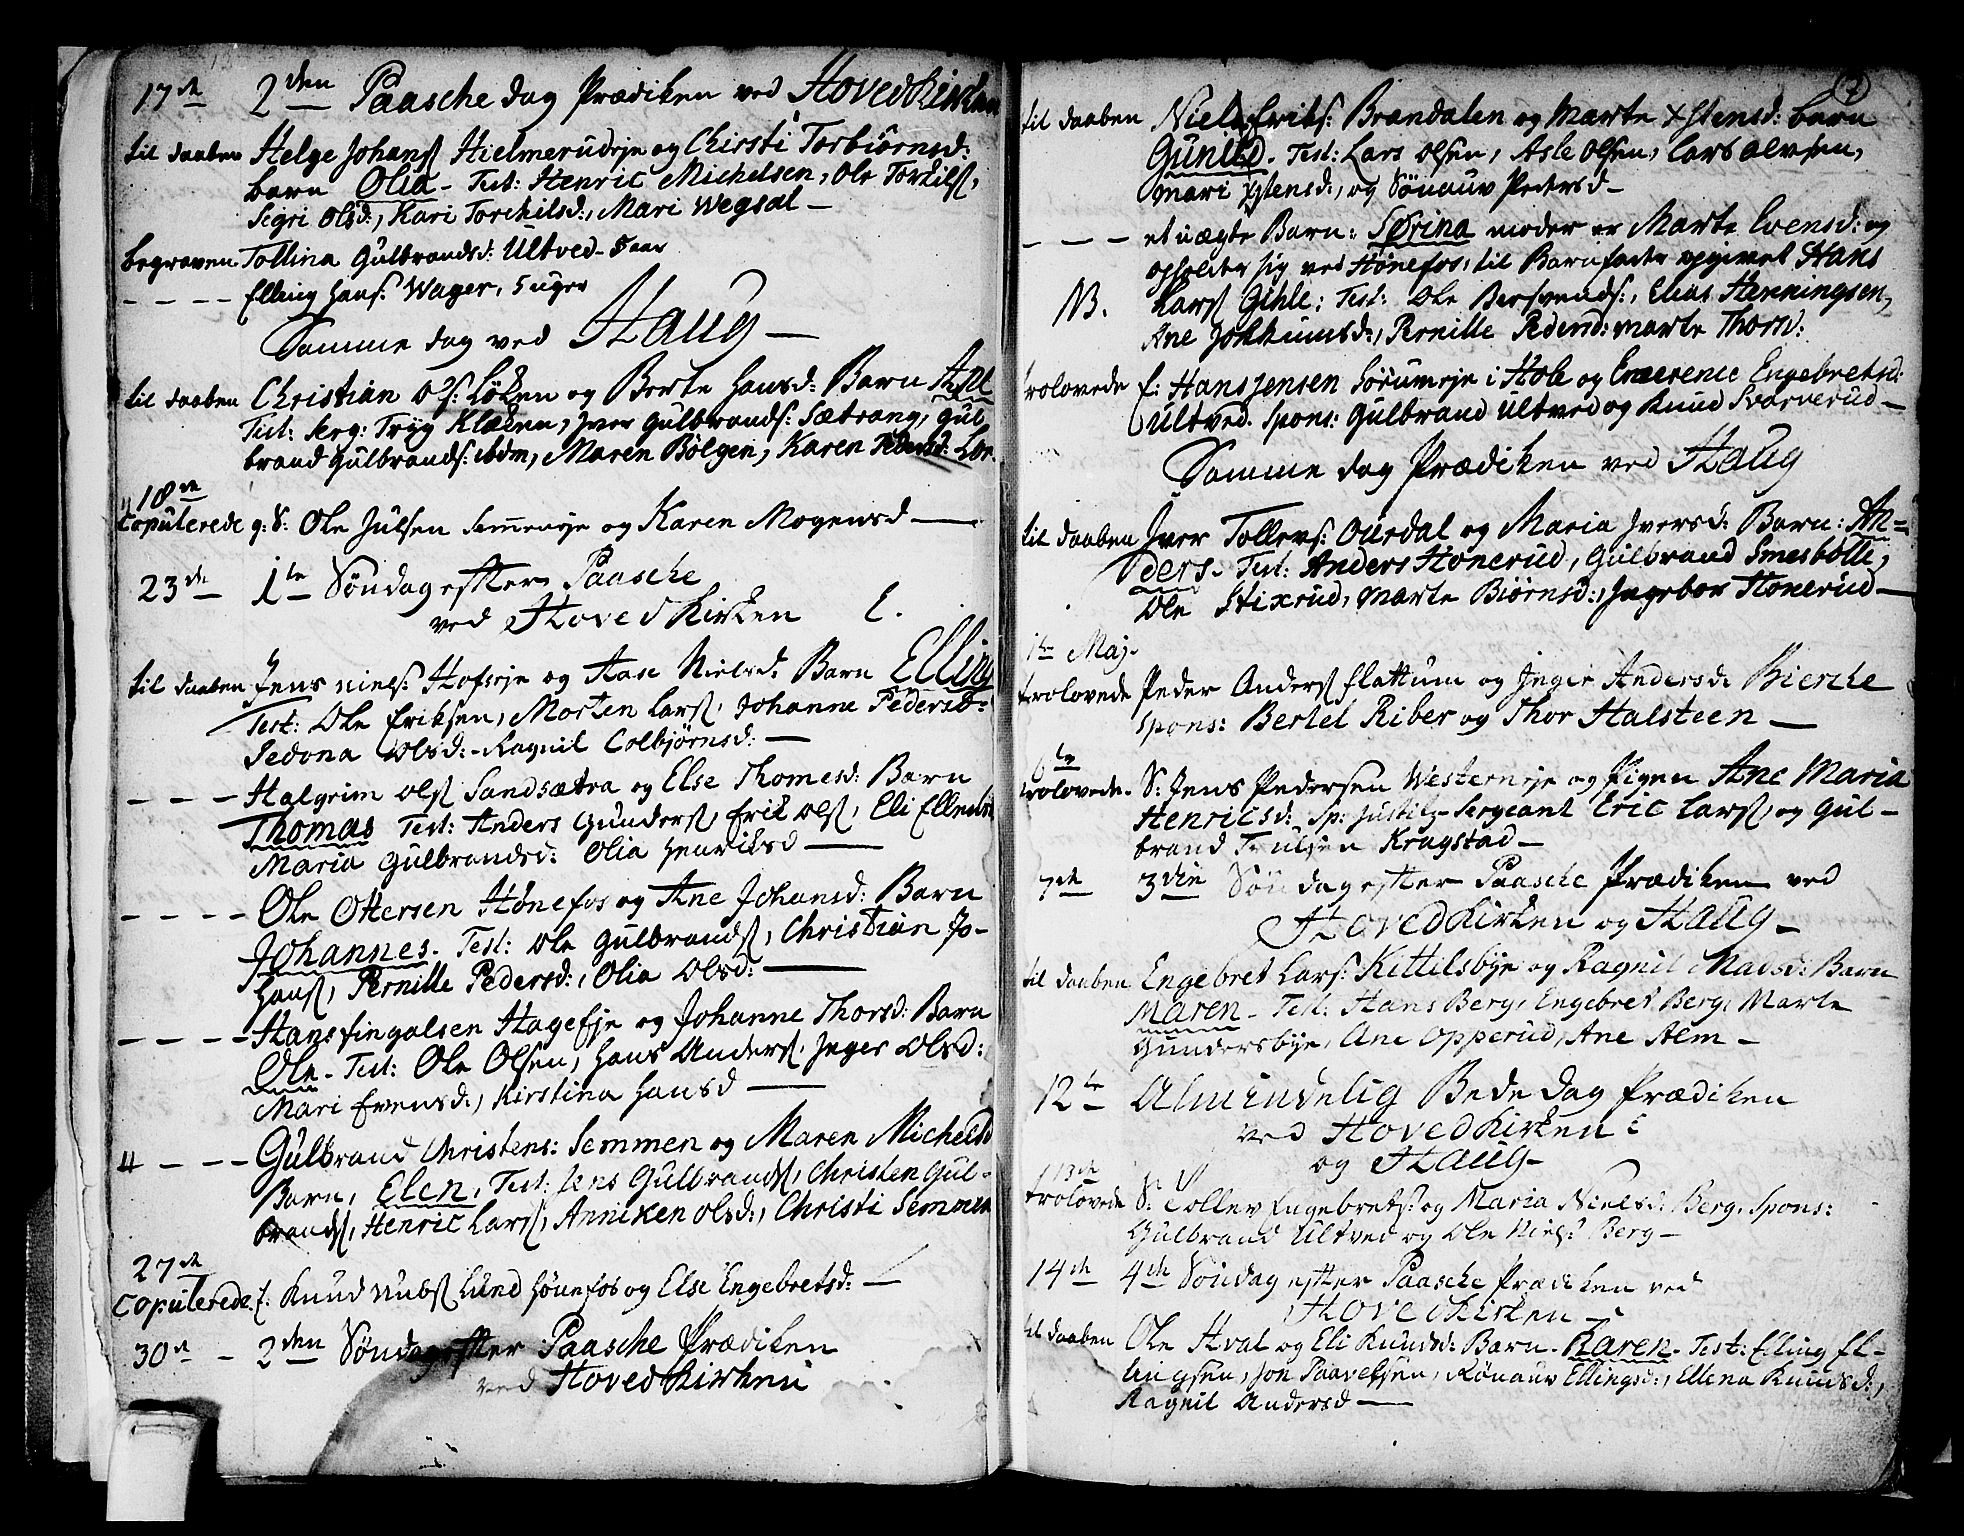 17de 2den Paasche dag Prædiken ved Hoved Kirken
til daaben Helge Johans Hielmerudeje og Chirsti Torbiørnsd:
barn Olia - Test: Henric Michelsen, Ole Torkilss,
Segri Olsd:, Kari Torchilsd:, Mari Wegsal —
begraven Tollina Gulbrandsd: Ultved - 5 aar
- - - - Elling Hans: Wager, 5 uger
Samme dag ved Haug —
til daaben Christian Ols: Løken og Berte Hansd: Barn
Test: Serg: Tryg Klækken, Iver Gulbrands: Sætrang, Gul
brand Gulbrands: ibdm, Maren Bølgen, Karen
18de
Copulerede g: S: Ole Julsen Semmenje og Karen Mogensd —
23de 1te Søndag efter Paasche
ved Hoved Kirken E.
til daaben Jens Niels: Hofseje og Aase Nielsd: Barn Elling
Test: Ole Eriksen, Morten Larss, Johanne Pedersd:
Sedona Olsd: - Ragnil Colbjørnsd: —
- - - Halgrim Olss Sandsætra og Else Thomesd: Barn
Thomas Test: Anders Gunderss, Erik Olss, Eli
Maria Gulbrandsd: Olia Henriksd —
- - - - Ole Ottersen Hønefos og Ane Johansd: Barn
Johannes. Test: Ole Gulbrandss, Christian Jo-
hanss, Pernille Pedersd:, Olia Olsd: —
- - - - Hans Fingalsen Hagefje og Johanne Thorsd: Barn
Ole - Test: Ole Olsen, Hans Anderss, Inger Olsd:
Mari Evensd:, Kirstina Hansd —
- - - Gulbrand Christens: Semmen og Maren Michelsd
Barn, Elen, Test: Jens Gulbrandss, Christen Gul-
brandss, Henric Larss, Anniken Olsd:, Christi Semmen
27de
Copulerede f. Knud Lund Hønefos og Else Engebretsd: —
30te - 2den Søndag efter Paasche Prædiken
ved Hoved Kirken
7
til daaben Niels Eriks: Brændalen og Marte Xstensd: barn
Gunild. Test: Lars Olsen, Asle Olsen, Lars Olvsen,
Mari Xstensd:, og Sønauv Pedersd —
- - - et uægte Barn: Sørina moder er Marte Evensd: og
opholder sig ved Hønefos, til Barnfader opgivet Hans
NB. Larss Gihle: Test: Ole Bersvends:, Elias Henningsen,
Ane Jokkumsd:, Pernille Pedersd: Marte Thorsd:
trolovede f: Hans Jensen Sørumeje i Hole og Engebretsd:
Ultved. Spons: Gulbrand Ultved og Knud Svarverud —
Samme dag Prædiken ved Haug
til daaben Iver Tollevs: Ouredal og Maria Iversd: Barn: An-
ders. Test: Anders Honerud, Gulbrand Smesbølle,
Ole Stixrud, Marte Biørnsd:, Ingebor Honerud —
1te Maj.
trolovede Peder Anderss Flattum og Inger Andersd: Bierche
Spons: Bertel Riber og Thor Halsteen —
6te
trolovede. S: Jens Pedersen Westerneje og Pigen Ane Maria
Henricsd: Sp: Justitz-Sergeant Eric Larss, og Gul-
brand Trulsen Kragstad —
7de 3die Søndag efter Paasche Prædiken ved
Hoved Kirken og Haug —
til daaben Engebret Lars: Kittilsbye og Ragnil Madsd: Barn
Maren - Test: Hans Berg, Engebret Berg, Marte
Gundersbye, Ane Opperud, Ane Alm —
12te Almindelig Bede dag Prædiken
ved Hoved Kirken E
og Haug —
13de
trolovede S: Tollev Engebrets: og Maria Nielsd: Berg. Spons:
Gulbrand Ultved og Ole Niels: Berg —
14de 4de Søndag efter Paasche Prædiken ved
Hoved Kirken —
til daaben Ole Hval og Eli Knudsd: Barn - Karen - Test: Elling El-
lingsen, Jon Paavelsen, Rønauv Ellingsd:, Ellena Knudsd:,
Ragnil Andersd —